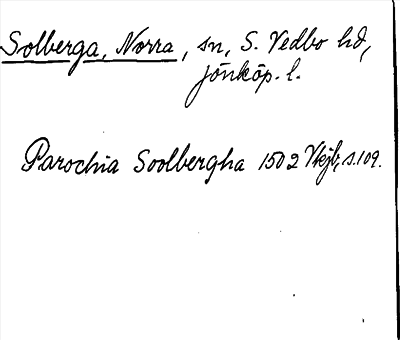 Solberga, Norra, sn, S. Vedbo hd,
Jönköp. l.
Parochia Soolbergha 1502 Vkjb, s. 109.